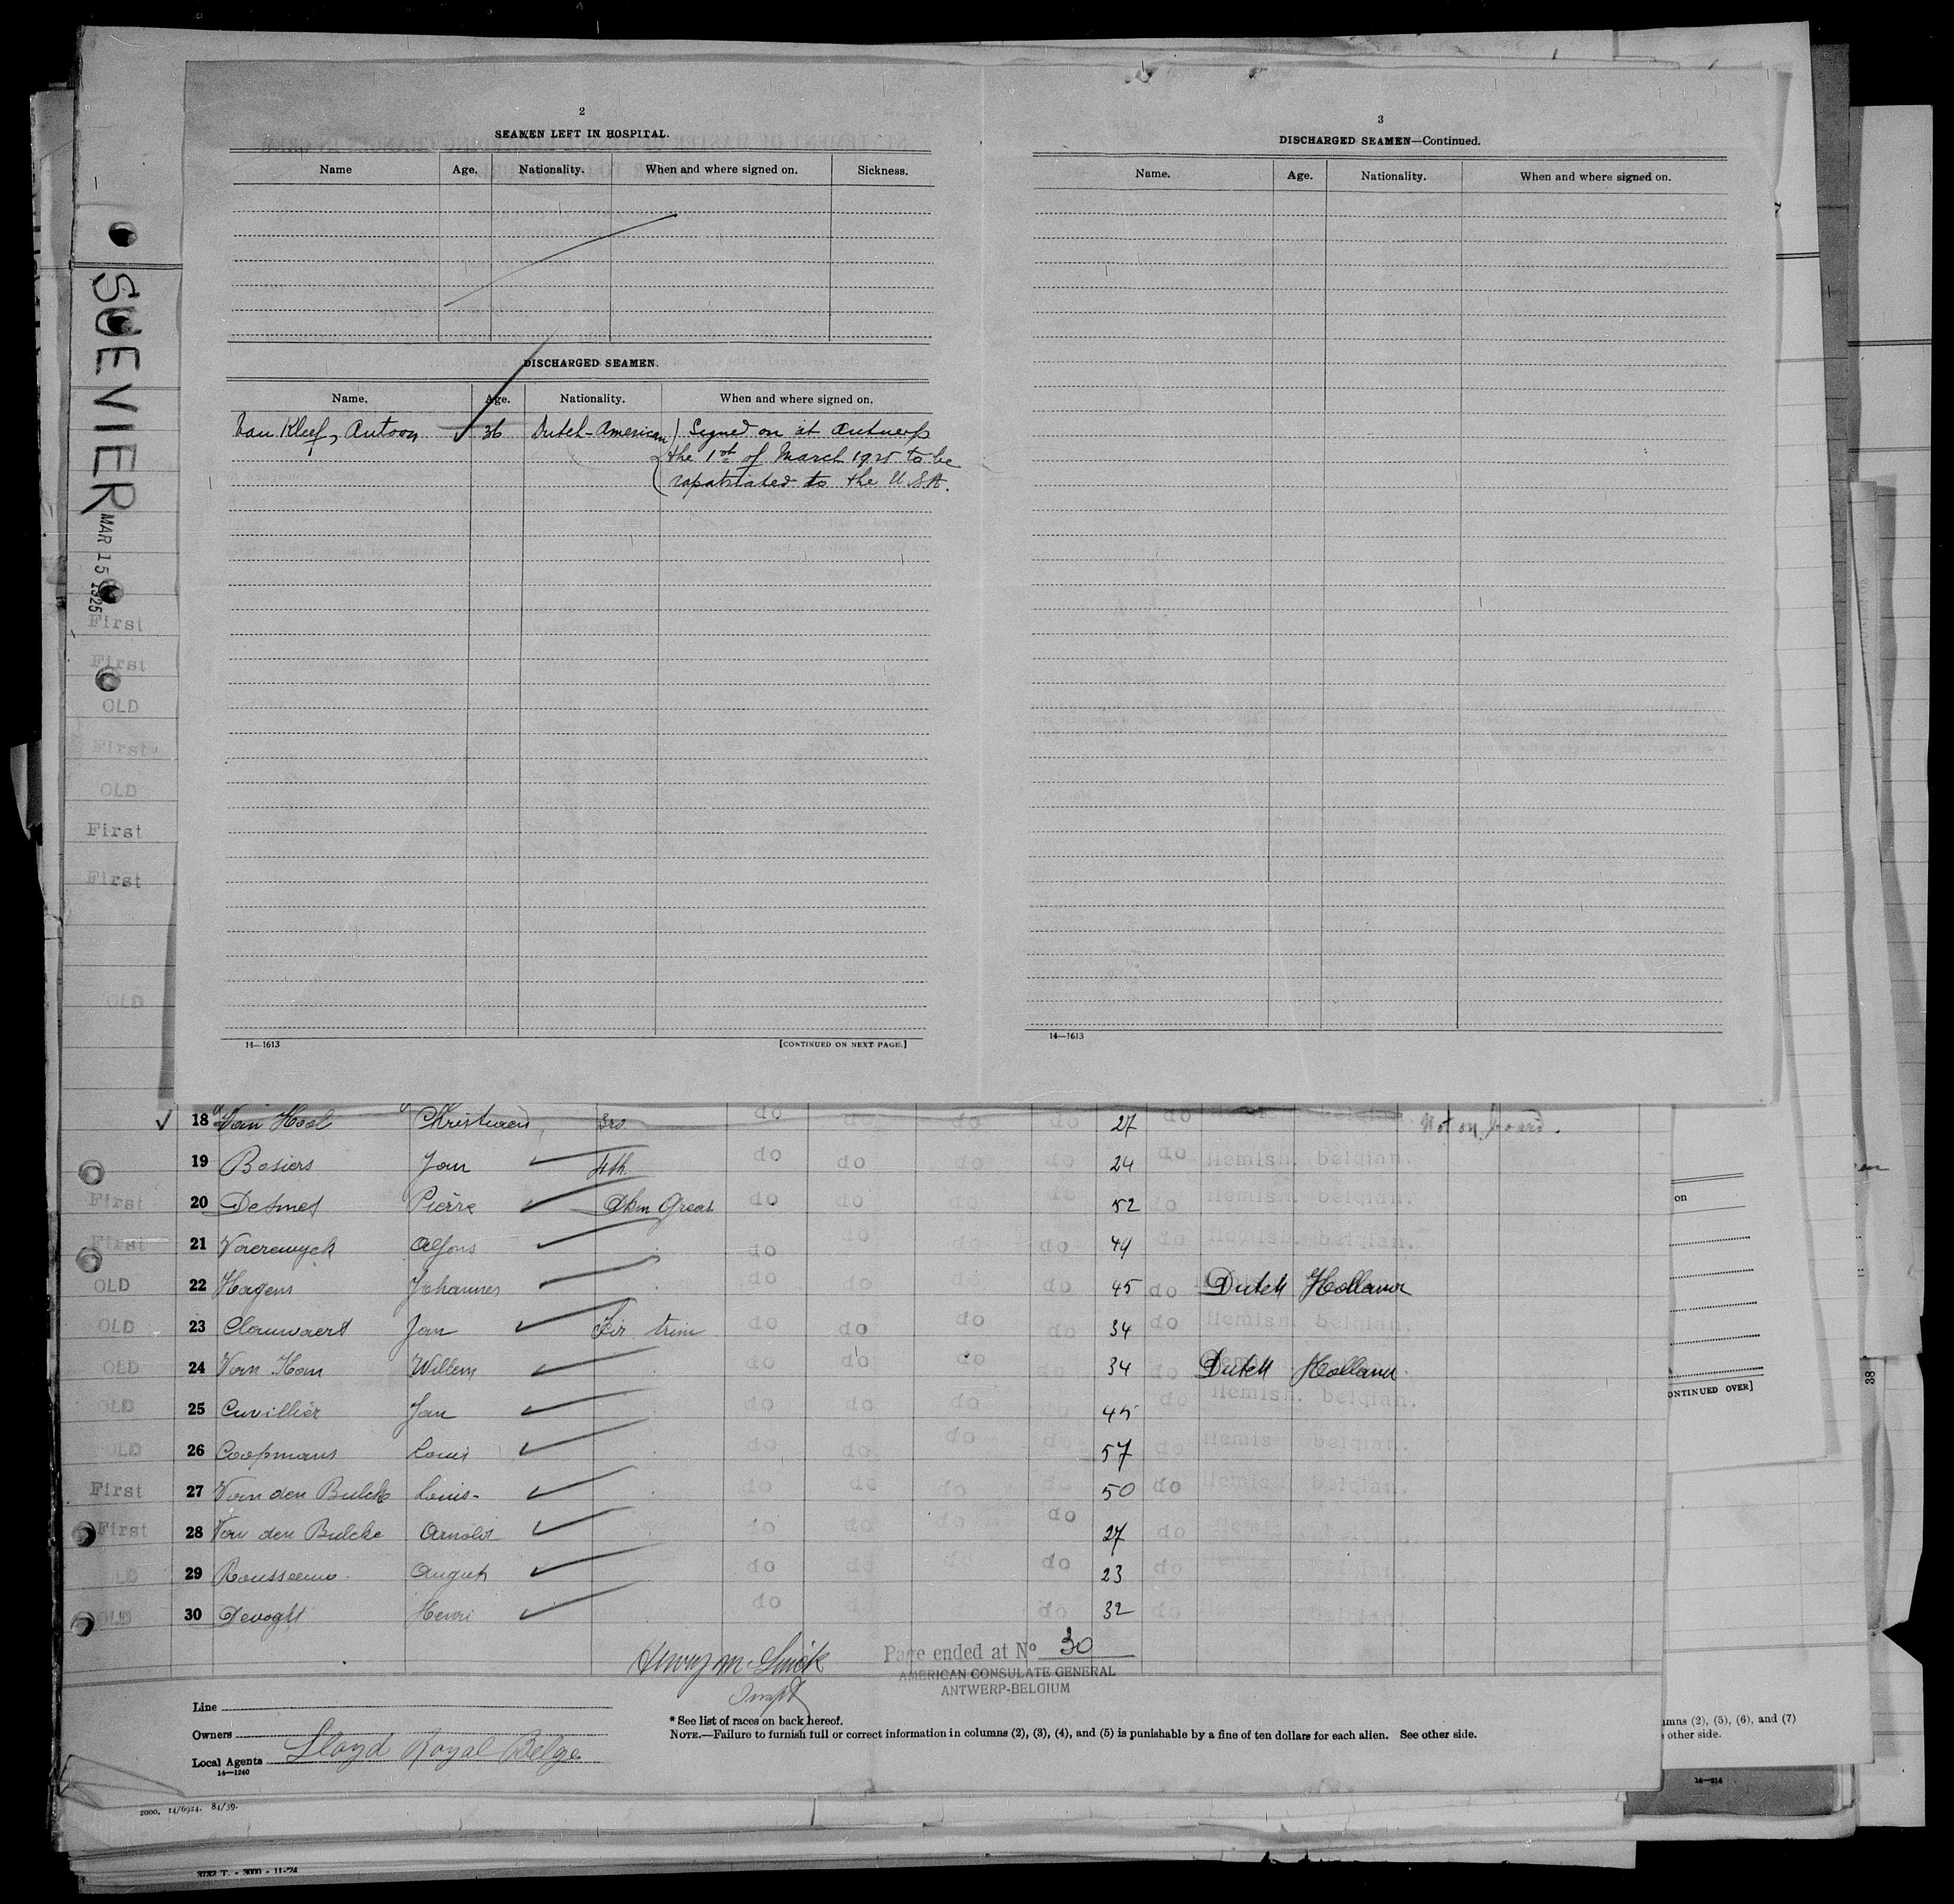 2
SEAMEN LEFT IN HOSPITAL.
Name Age. Nationality. When and where signed on. Sickness.
DISCHARGED SEAMEN.
Name. Age. Nationality. When and where signed on.
Van Kleef, Antoon 36 Dutch-American Signed on at Antwerp
the 1st of March 1925 to be
rapatriated to the U.S.A.
14—1613 [CONTINUED ON NEXT PAGE.]
3
DISCHARGED SEAMEN—Continued.
Name. Age. Nationality. When and where signed on.
14—1613
SUEVIER
MAR 15 1925
First
First
OLD
First
OLD
First
First
OLD
18 Van Hool Christiaen 3rd do do do do 27 do belgian. Not on board.
19 Bosiers Jan 4th do do do do 24 do flemish. belgian.
First 20 Desmet Pierre Dkm Greas do do do do 52 do flemish. belgian.
First 21 Voorewyck Alfons do do do do 49 do flemish. belgian.
OLD 22 Hagens Johannes do do do do 45 do Dutch Holland
OLD 23 Clauwaert Jan Fir trim do do do do 34 do flemish. belgian.
OLD 24 Van Ham Willem do do do do 34 do Dutch Holland
OLD 25 Cuvillier Jan do do do do 45 do flemish. belgian.
OLD 26 Coopmans Louis do do do do 57 do flemish belgian.
First 27 Van den Bulcke Louis- do do do do 50 do flemish belgian.
First 28 Van den Bulcke Arnold do do do do 27 do
OLD 29 Rousseeuw August do do do do 23 do
OLD 30 Devoght Henri do do do 32 do belgian.
Page ended at No 30
AMERICAN CONSULATE GENERAL
ANTWERP-BELGIUM
Line
Owners
Local Agents Lloyd Royal Belge
14—1240
* See list of races on back hereof.
NOTE.—Failure to furnish full or correct information in columns (2), (3), (4), and (5) is punishable by a fine of ten dollars for each alien. See other side.
2000. 14/6924. 84/39.
3732 T. - 3000 - 11-24
on
ONTINUED OVER]
38
umns (2), (5), (6), and (7)
other side.
14—214